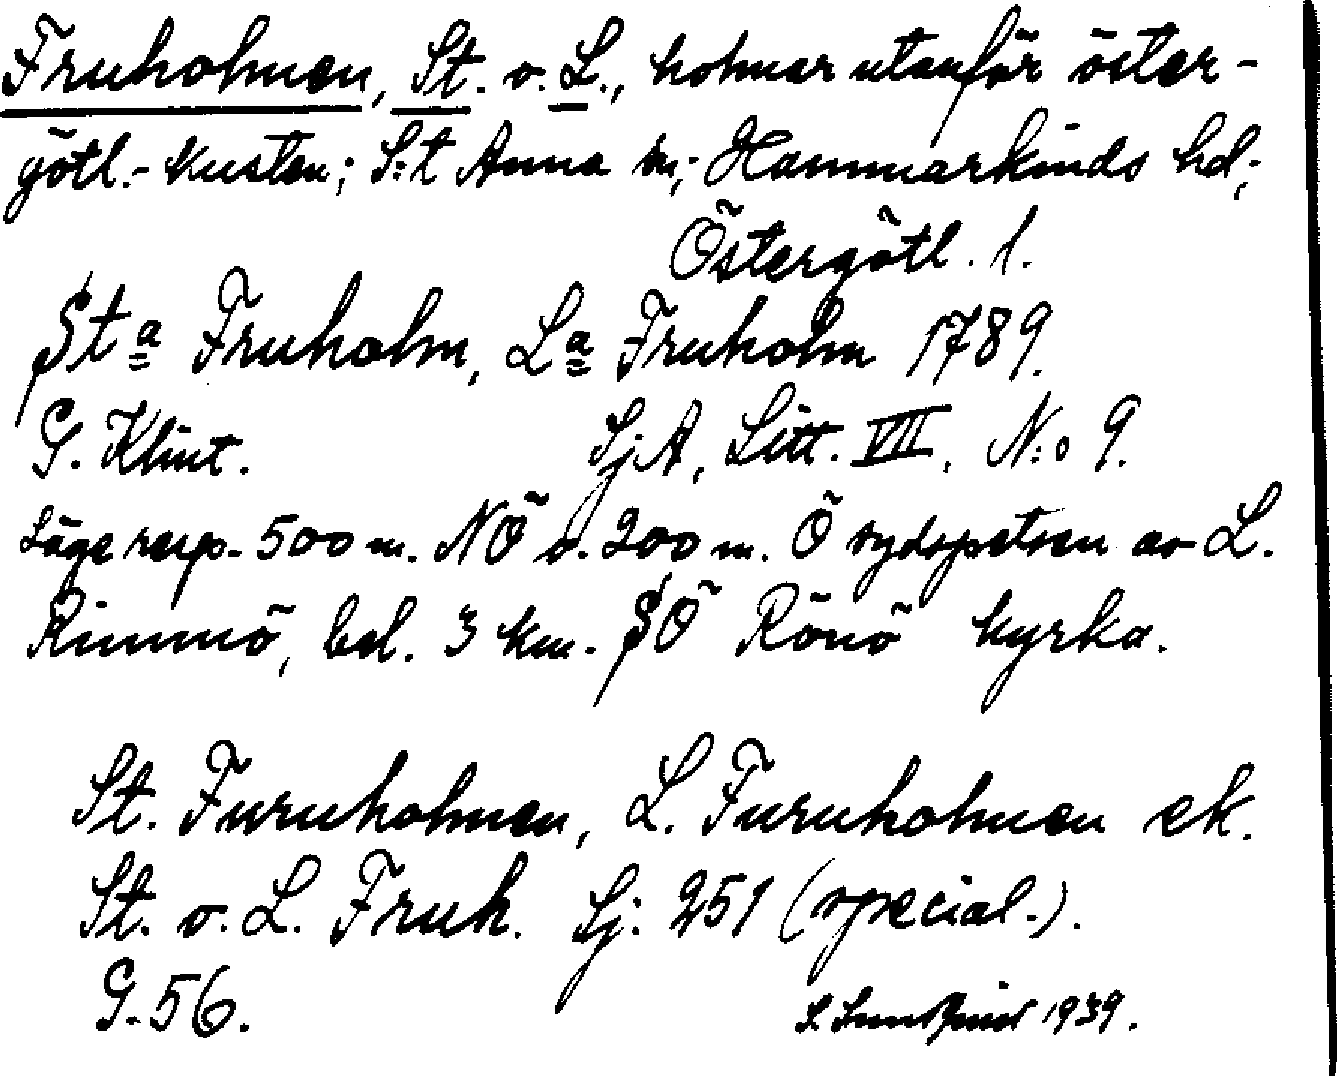 Fruholmen, St. o. L., holmar utanför öster-
götl.-kusten; S:t Anna sn; Hammarkinds hd;
Östergötl. l.
Sta Fruholm, La Fruholm 1789.
G. Klint. SjA, Litt. VII, N:o 9.
Läge resp. 500 m. NÖ o. 200 m. Ö sydspetsen av L.
Rimmö, bel. 3 km. SÖ Rönö kyrka.
St. Furuholmen, L. Furuholmen ek.
St. o. L. Fruh. Sj. 251 (special.).
G. 56.
1939.